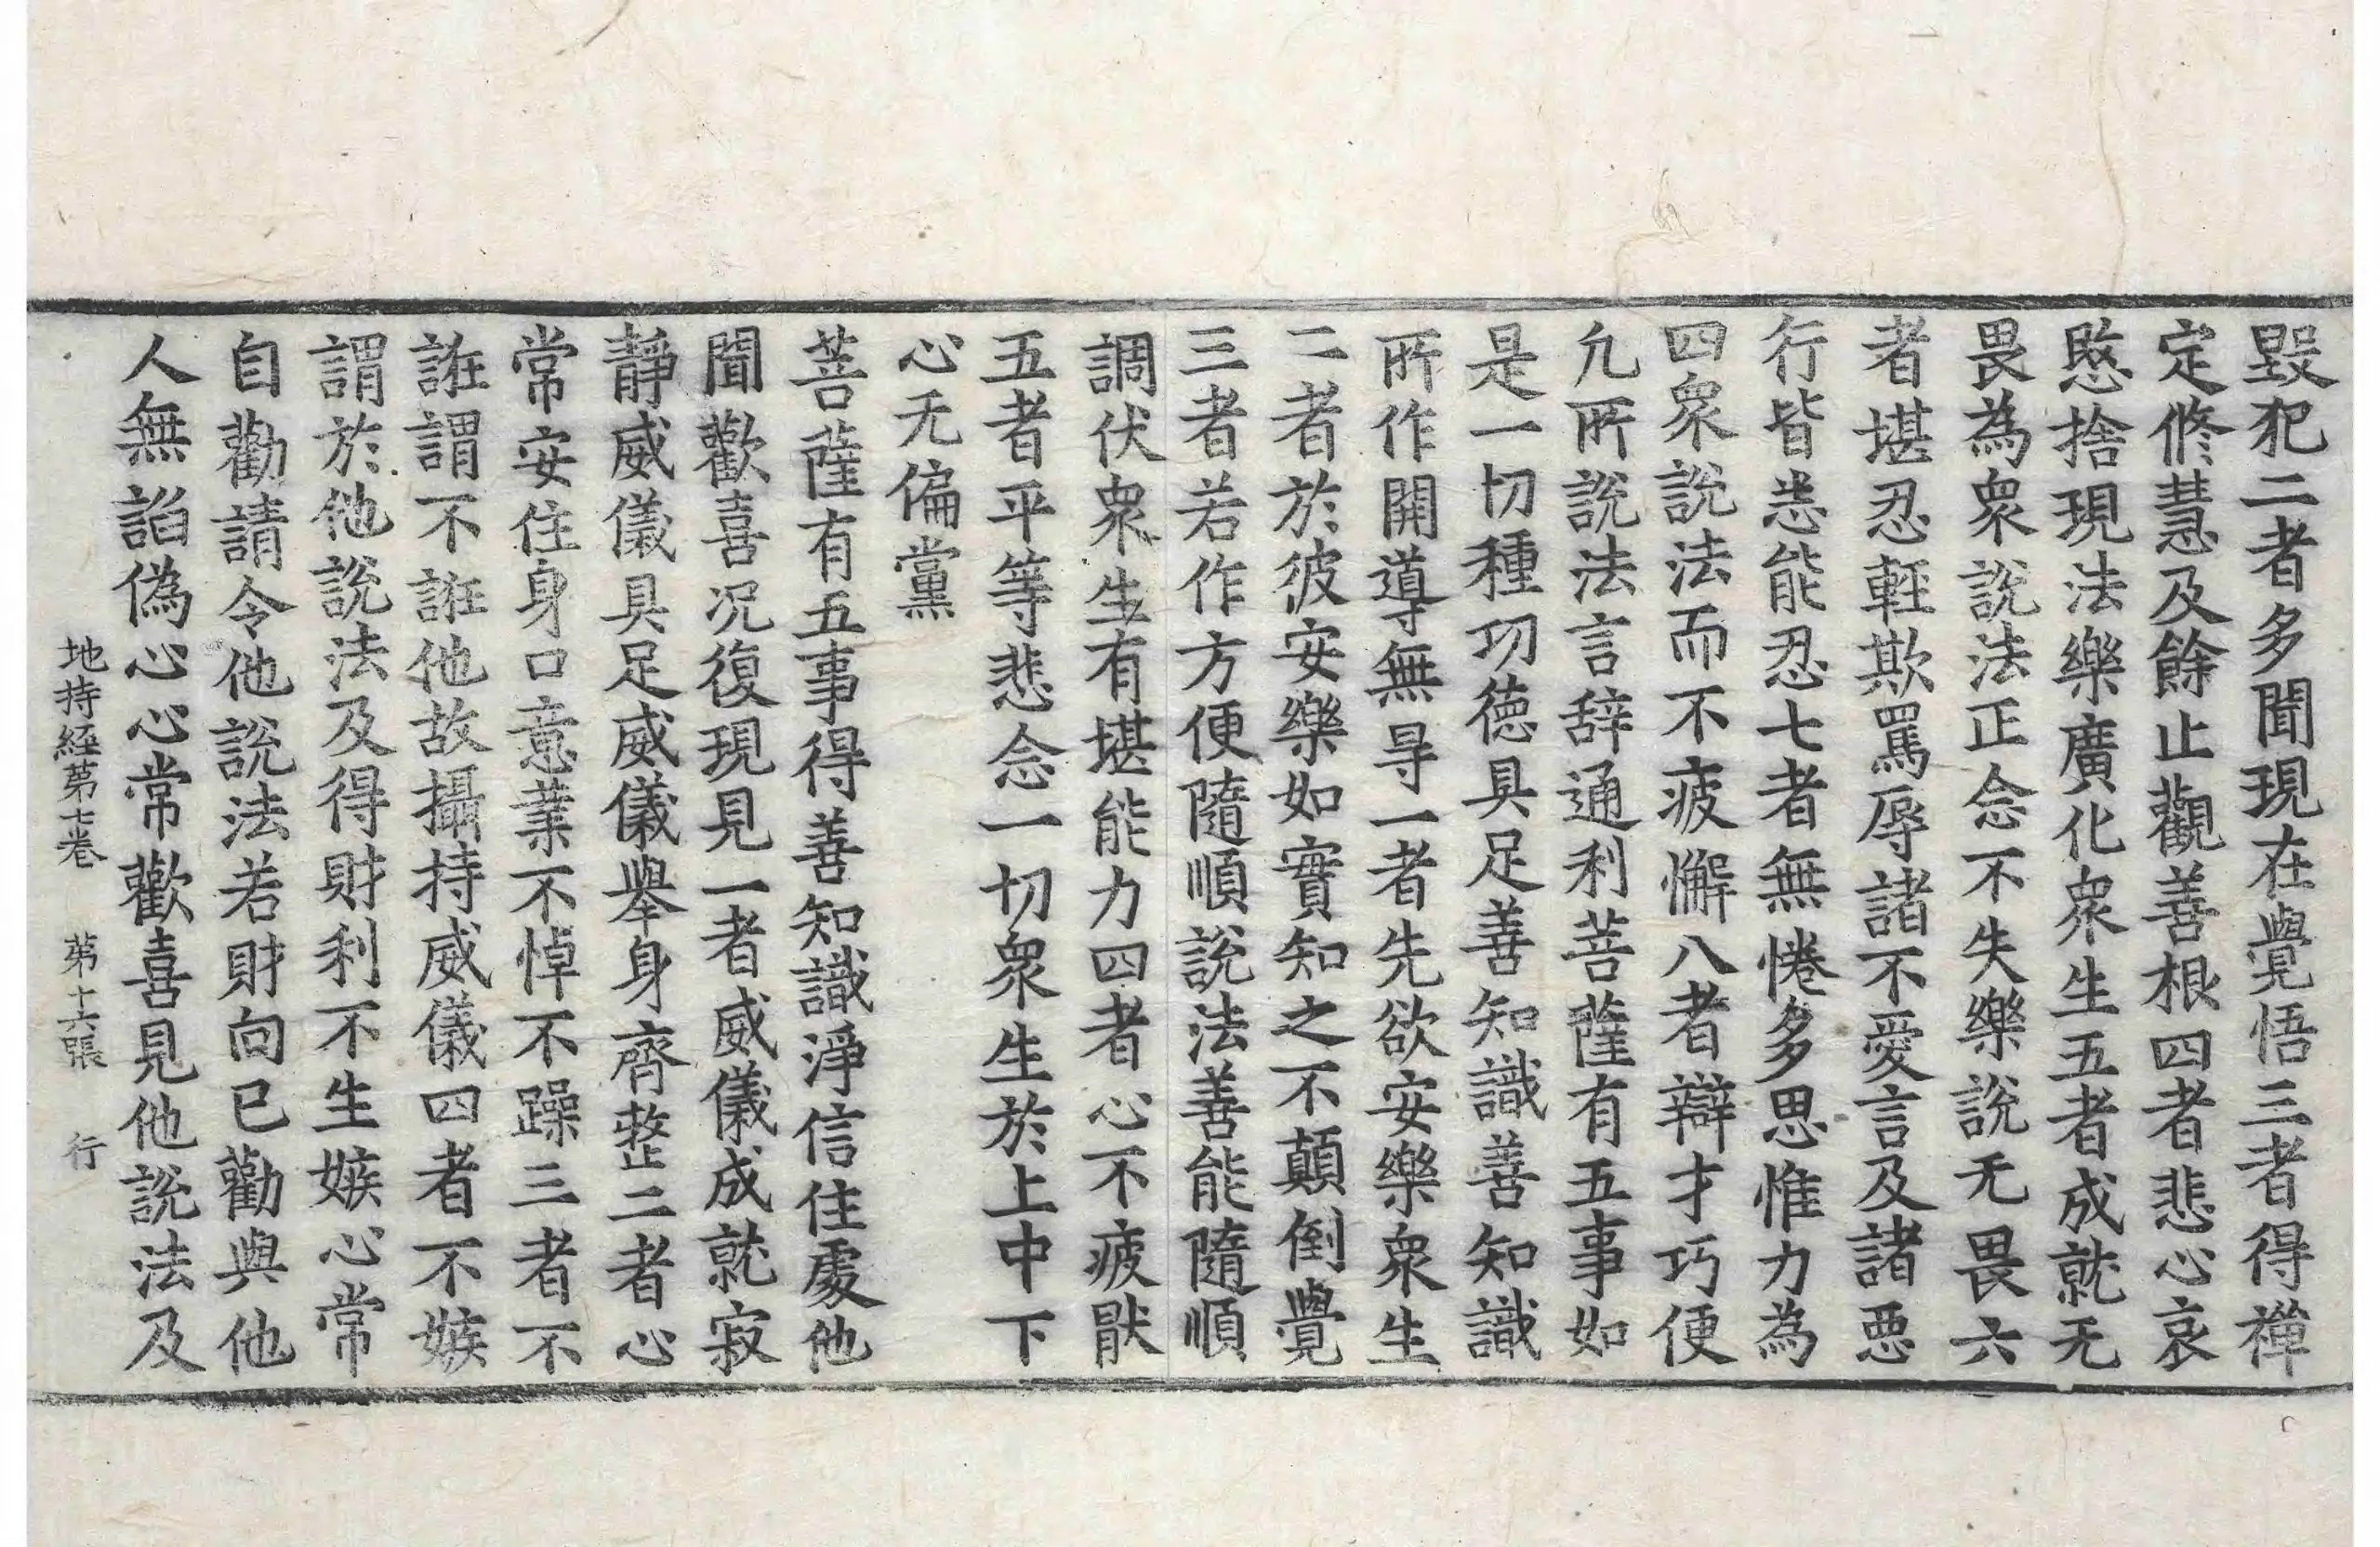 毀犯二者多聞現在覺悟三者得禪
定修慧及餘止觀善根四者悲心哀
愍捨現法樂廣化衆生五者成就无
畏為衆說法正念不失樂說无畏六
者堪忍輕欺罵辱諸不愛言及諸惡
行皆悉能忍七者無惓多思惟力為
四衆說法而不疲懈八者辯才巧便
凢所說法言辞通利菩薩有五事如
是一切種功德具足善知識善知識
所作開導無㝵一者先欲安樂衆生
二者於彼安樂如實知之不顛倒覺
三者若作方便隨順說法善能隨順
調伏衆生有堪能力四者心不疲猒
五者平等悲念一切衆生於上中下
心无偏黨
菩薩有五事得善知識淨信住處他
聞歡喜況復現見一者威儀成就寂
靜威儀具足威儀舉身齊整二者心
常安住身口意業不悼不躁三者不
誑謂不誑他故攝持威儀四者不嫉
謂於他說法及得財利不生嫉心常
自勸請令他說法若財向已勸與他
人無諂偽心心常歡喜見他說法及
地持經第七卷 第十六張 行